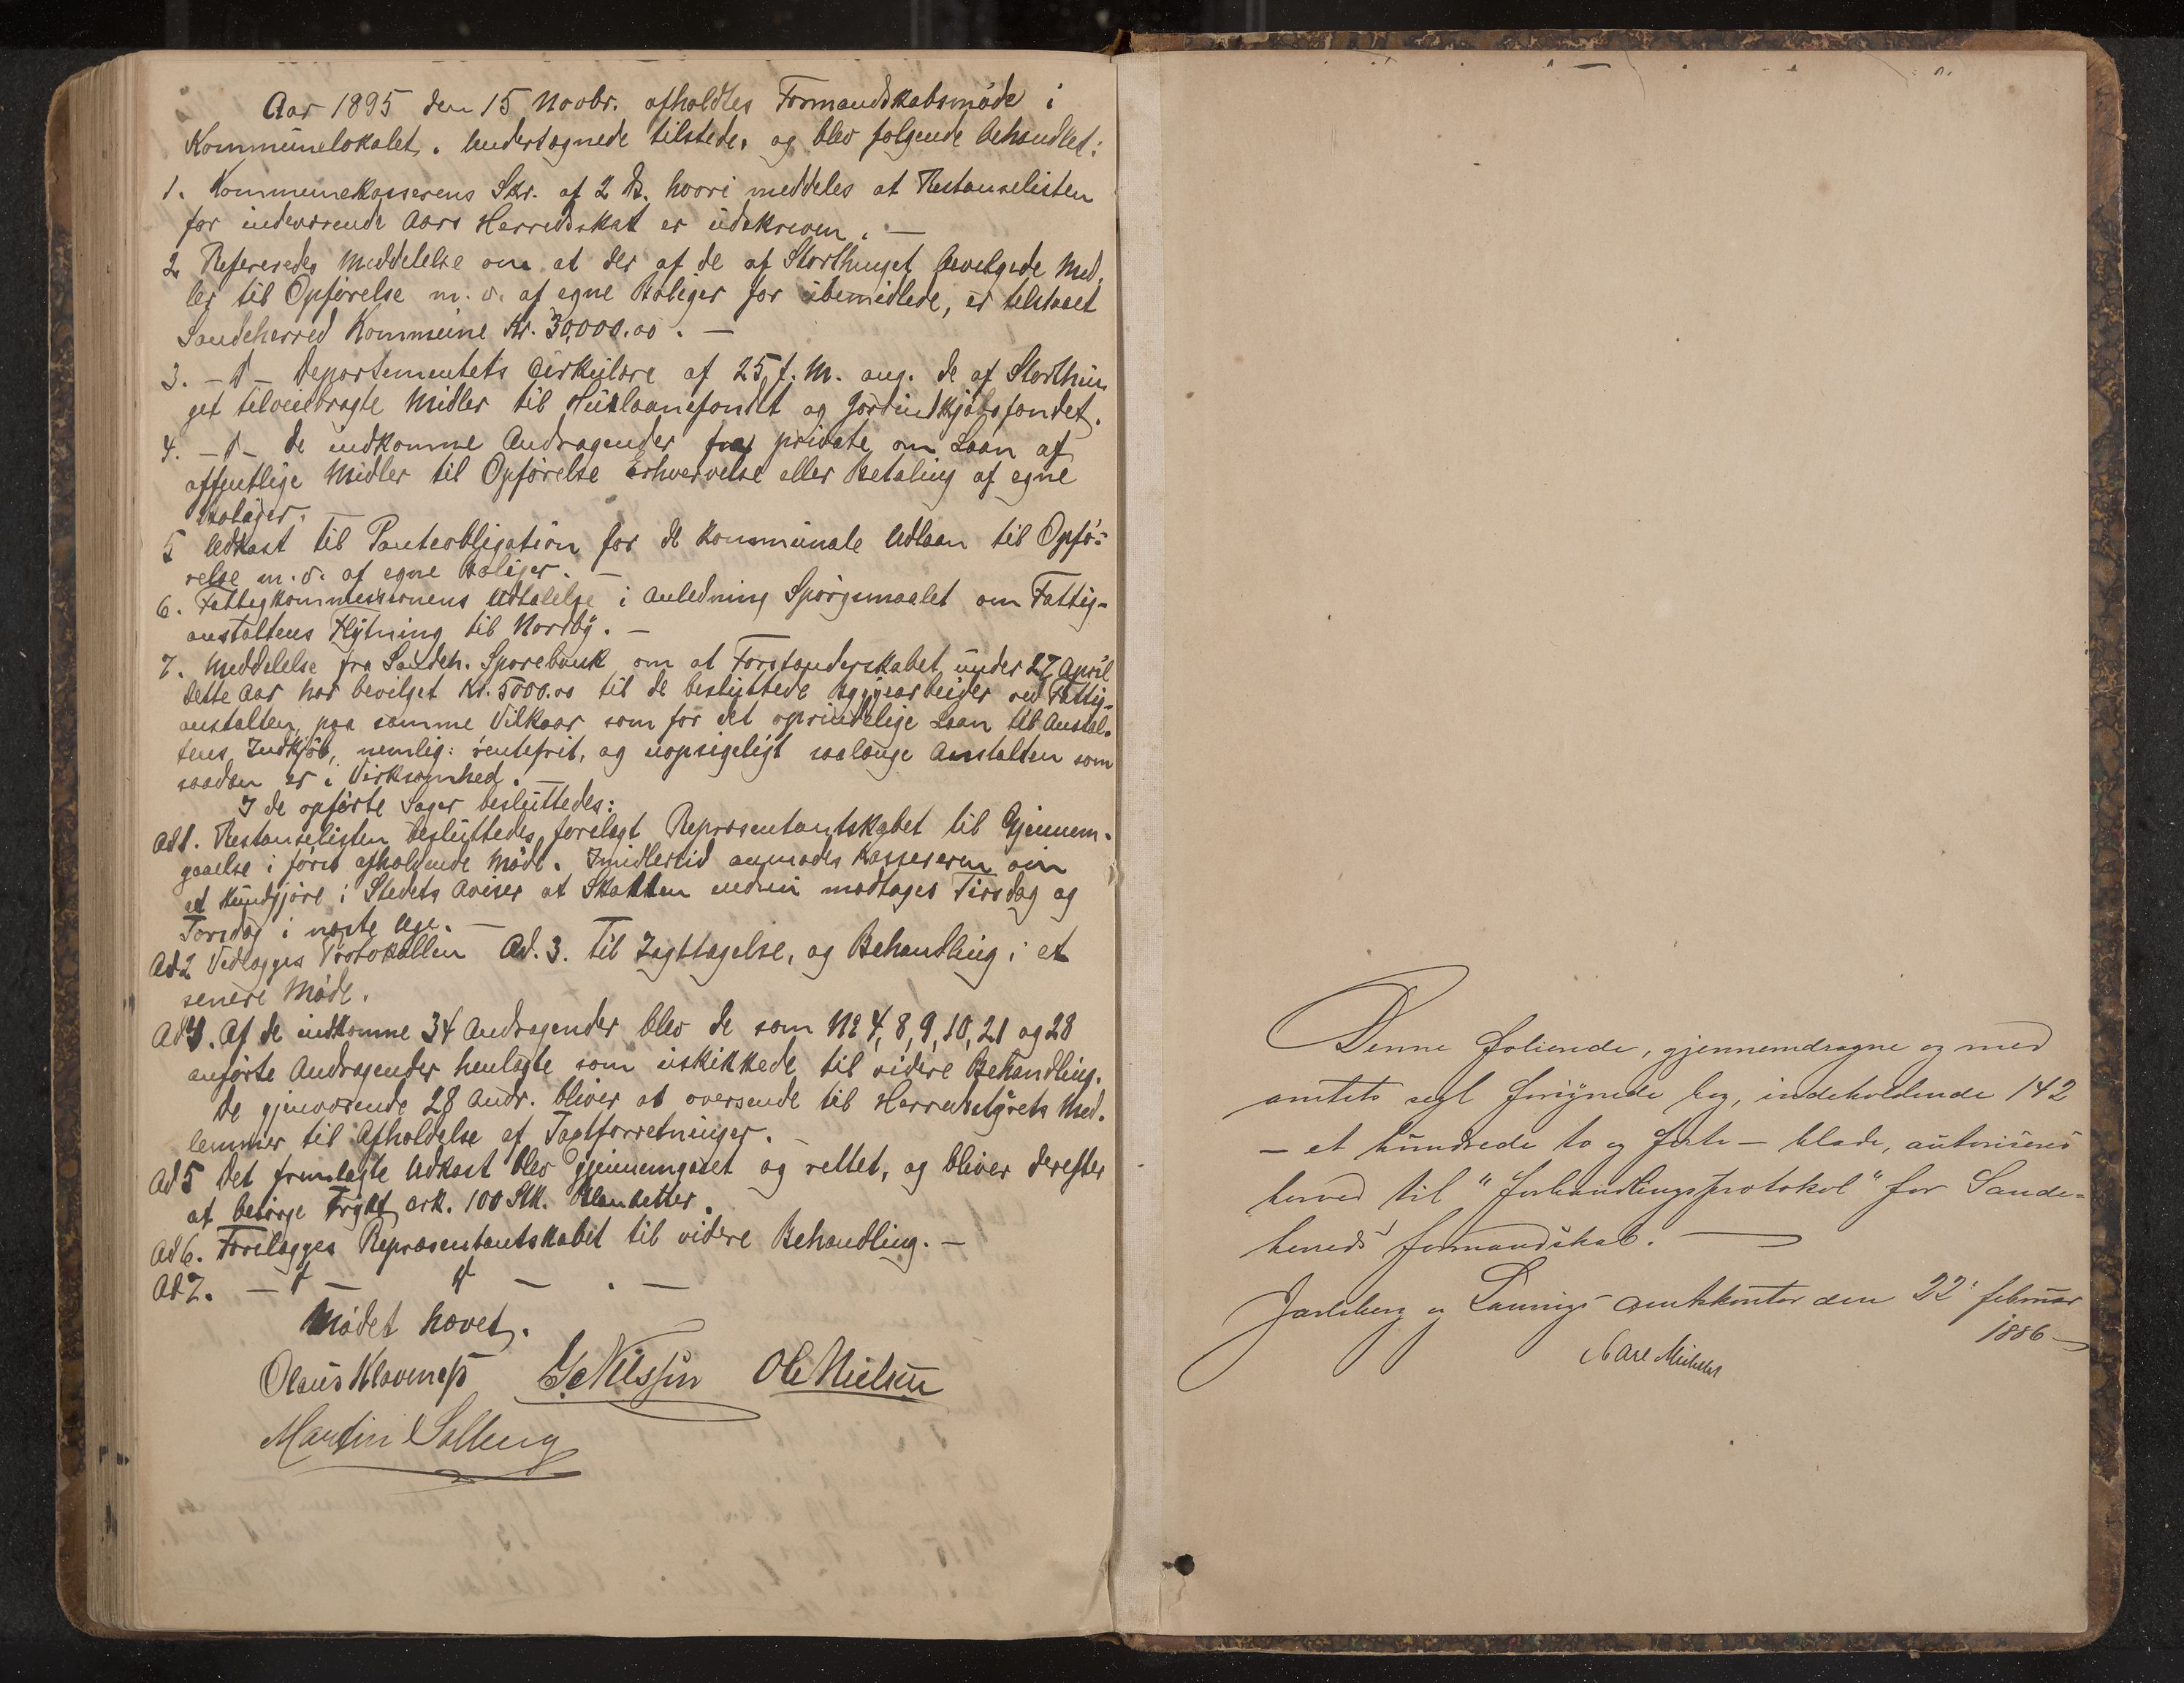 Aar 1895 den 15 Novbr. afholdtes Formandskabsmøde i
Kommunelokalet. Undertegnede tilstede, og blev følgende behandlet:
1. Kommunekasserens Skr. af 2 ds. hvori meddeles at Restanselisten
for indeværende Aars Herredsskat er udskreven. —
2 Refereredes Meddelelse om at der af de af Storthinget bevilgede Mid-
ler til Opførelse m. v. af egne Boliger for ubemidlede, er tilstaaet
Sandeherred Kommune Kr. 30,000.00. —
3. — d — Departementets Cirkulære af 25 f. M. ang. de af Storthin
get tilveiebragte Midler til Huslaanefondet og Jordindkjøbsfondet.
4. — d — de indkomne Andragender fra private om Laan af
offentlige Midler til Opførelse Erhvervelse eller Betaling af egne
Boliger. —
5 Udkast til Panteobligation for de kommunale Udlaan til Opfø-
relse m. v. af egne Boliger. —
6. Fattigkommissionens Udtalelse i Anledning Spørgsmaalet om Fattig-
anstaltens Flytning til Nordby. —
7. Meddelelse fra Sandeh. Sparebank om at Forstanderskabet under 27 April
dette Aar har bevilget Kr. 5000.00 til de besluttede Byggearbeider ved Fattig-
anstalten paa samme Vilkaar som for det oprindelige Laan til Anstal-
tens Indkjøb, nemlig: rentefrit, og uopsigeligt saalænge Anstalten som
saadan er i Virksomhed. —
I de opførte Sager besluttedes:
Ad 1. Restanselisten besluttedes forelagt Repræsentantskabet til Gjennem-
gaaelse i først afholdende Møde. Imidlertid anmodes Kassereren om
at kundgjøre i Stedets Aviser at Skatten endnu modtages Tirsdag og
Torsdag i næste Uge. —
Ad 2 Vedlægges Protokollen Ad. 3. Til Iagttagelse, og Behandling i et
senere Møde.
Ad 4. Af de indkomne 34 Andragender blev de som No 4, 8, 9, 10, 21 og 28
anførte Andragender henlagte som uskikkede til videre Behandling.
De gjenværende 28 Andr. bliver at oversende til Herredsstyrets Med-
lemmer til Afholdelse af Taxtforretninger. —
Ad 5 Det fremlagte Udkast blev gjennemgaaet og rettet, og bliver derefter
at besørge trykt ark. 100 Stk. Blanketter.
Ad 6. Forelægges Repræsentantskabet til videre Behandling. —
Ad 7. — d — d — . —
Mødet hævet.
Olaus Klavenæss G. Nilssen Ole Nielsen
Martin Solberg
Denne folierede, gjennemdragne og med
amtets segl forsynede bog, indeholdende 142
— et hundrede to og førti — blade, autoriseres
herved til "forhandlingsprotokol" for Sande-
herreds formandskab. —
Jarlsberg og Laurvigs amtskontor den 22 februar
1886 —